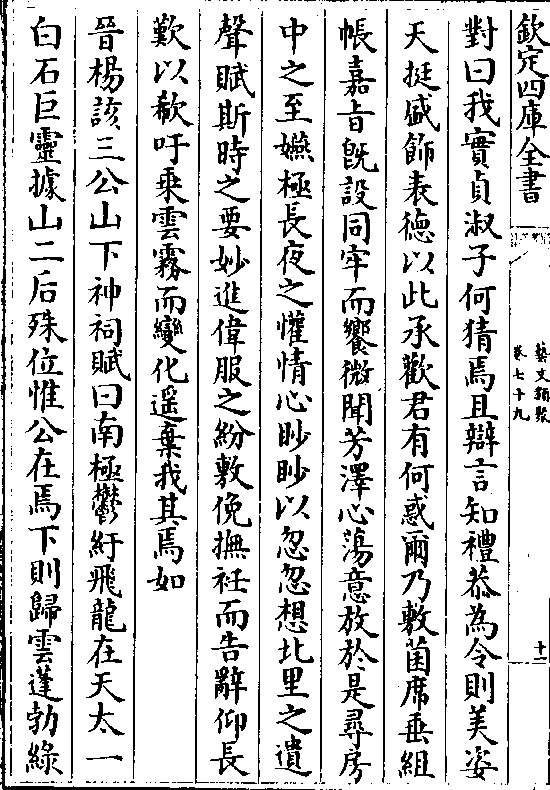 欽定四庫全書
藝文類聚
卷七十九
十一
對曰我實貞淑子何猜焉且辯言知禮恭為令則美姿
天挺盛飾表德以此承歡君有何惑爾乃敷茵席垂組
帳嘉旨既設同牢而饗微聞芳澤心蕩意放於是尋房
中之至嬿極長夜之懽情心眇眇以忽忽想北里之遺
聲賦斯時之要妙進偉服之紛敷俛撫衽而告辭仰長
歎以欷吁乗雲霧而變化遥棄我其焉如
晉楊該三公山下神祠賦曰南極鬱紆飛龍在天太一
白石巨靈據山二后殊位惟公在焉下則歸雲蓬勃綠